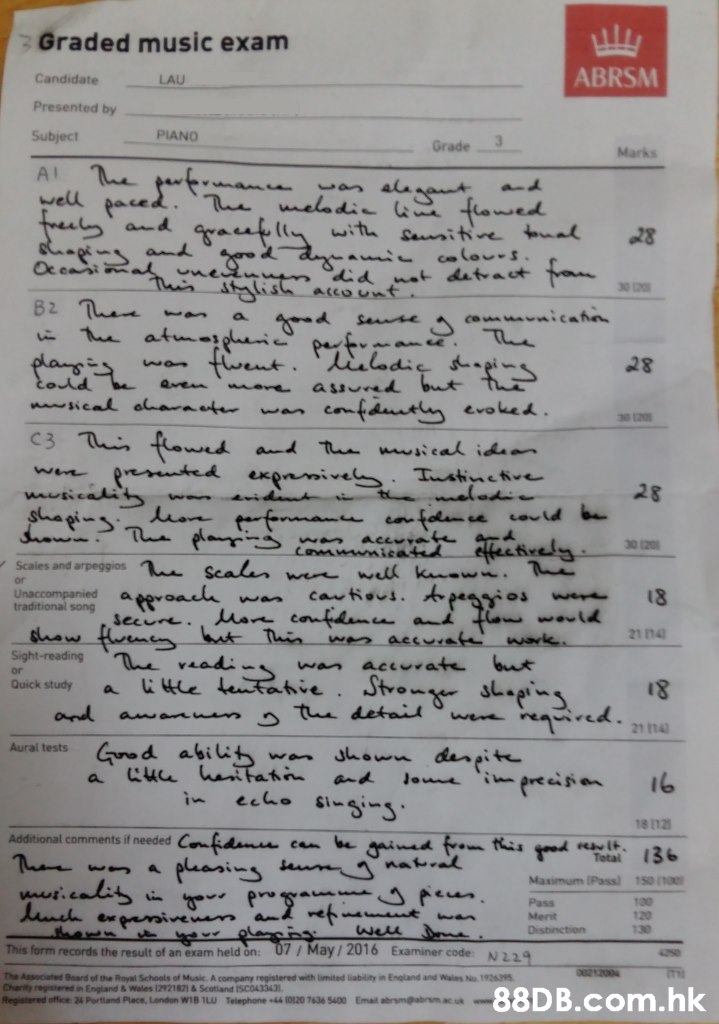 Graded music exam
ABRSM
Candidate LAU
Presented by
Subject PIANO Grade 3
Marks
A1 The performance was elegant and
well paced. The melodic line flowed
freely and gracefully with sensitive tonal 28
shaping and good dynamic colours.
Occasional unevenness did not detract from
This stylish account. 30 (20)
B2 There was a good sense of communication
in the atmospheric performance. The
playing was fluent. Melodic shaping 28
could be even more assured but the
musical character was confidently evoked. 30 (20)
C3 This flowed and the musical ideas
were presented expressively. Instinctive
musicality was evident in the melodic 28
shaping. More performance confidence could be
shown. The playing was accurate and
communicated effectively. 30 (20)
Scales and arpeggios The scales were well known. The
or
Unaccompanied approach was cautious. Arpeggios were 18
traditional song
secure. More confidence and flow would
show fluency but this was accurate work. 21 (14)
Sight-reading The reading was accurate but
or
Quick study a little tentative. Stronger shaping 18
and awareness of the detail were required. 21 (14)
Aural tests Good ability was shown despite
a little hesitation and some imprecision 16
in echo singing.
18 (12)
Additional comments if needed Confidence can be gained from this good result.
Total 136
There was a pleasing sense of natural
Maximum (Pass) 150 (100)
musicality in your programme of pieces.
Pass 100
Much expressiveness and refinement was
Merit 120
shown in your playing. Well Done.
Distinction 130
This form records the result of an exam held on: 07 / May / 2016 Examiner code: N229
4250
00212004 (T1)
The Associated Board of the Royal Schools of Music. A company registered with limited liability in England and Wales No. 1926395.
Charity registered in England & Wales (292182) & Scotland (SC043343).
Registered office: 24 Portland Place, London W1B 1LU Telephone +44 (0)20 7636 5400 Email abrsm@abrsm.ac.uk
88DB.com.hk